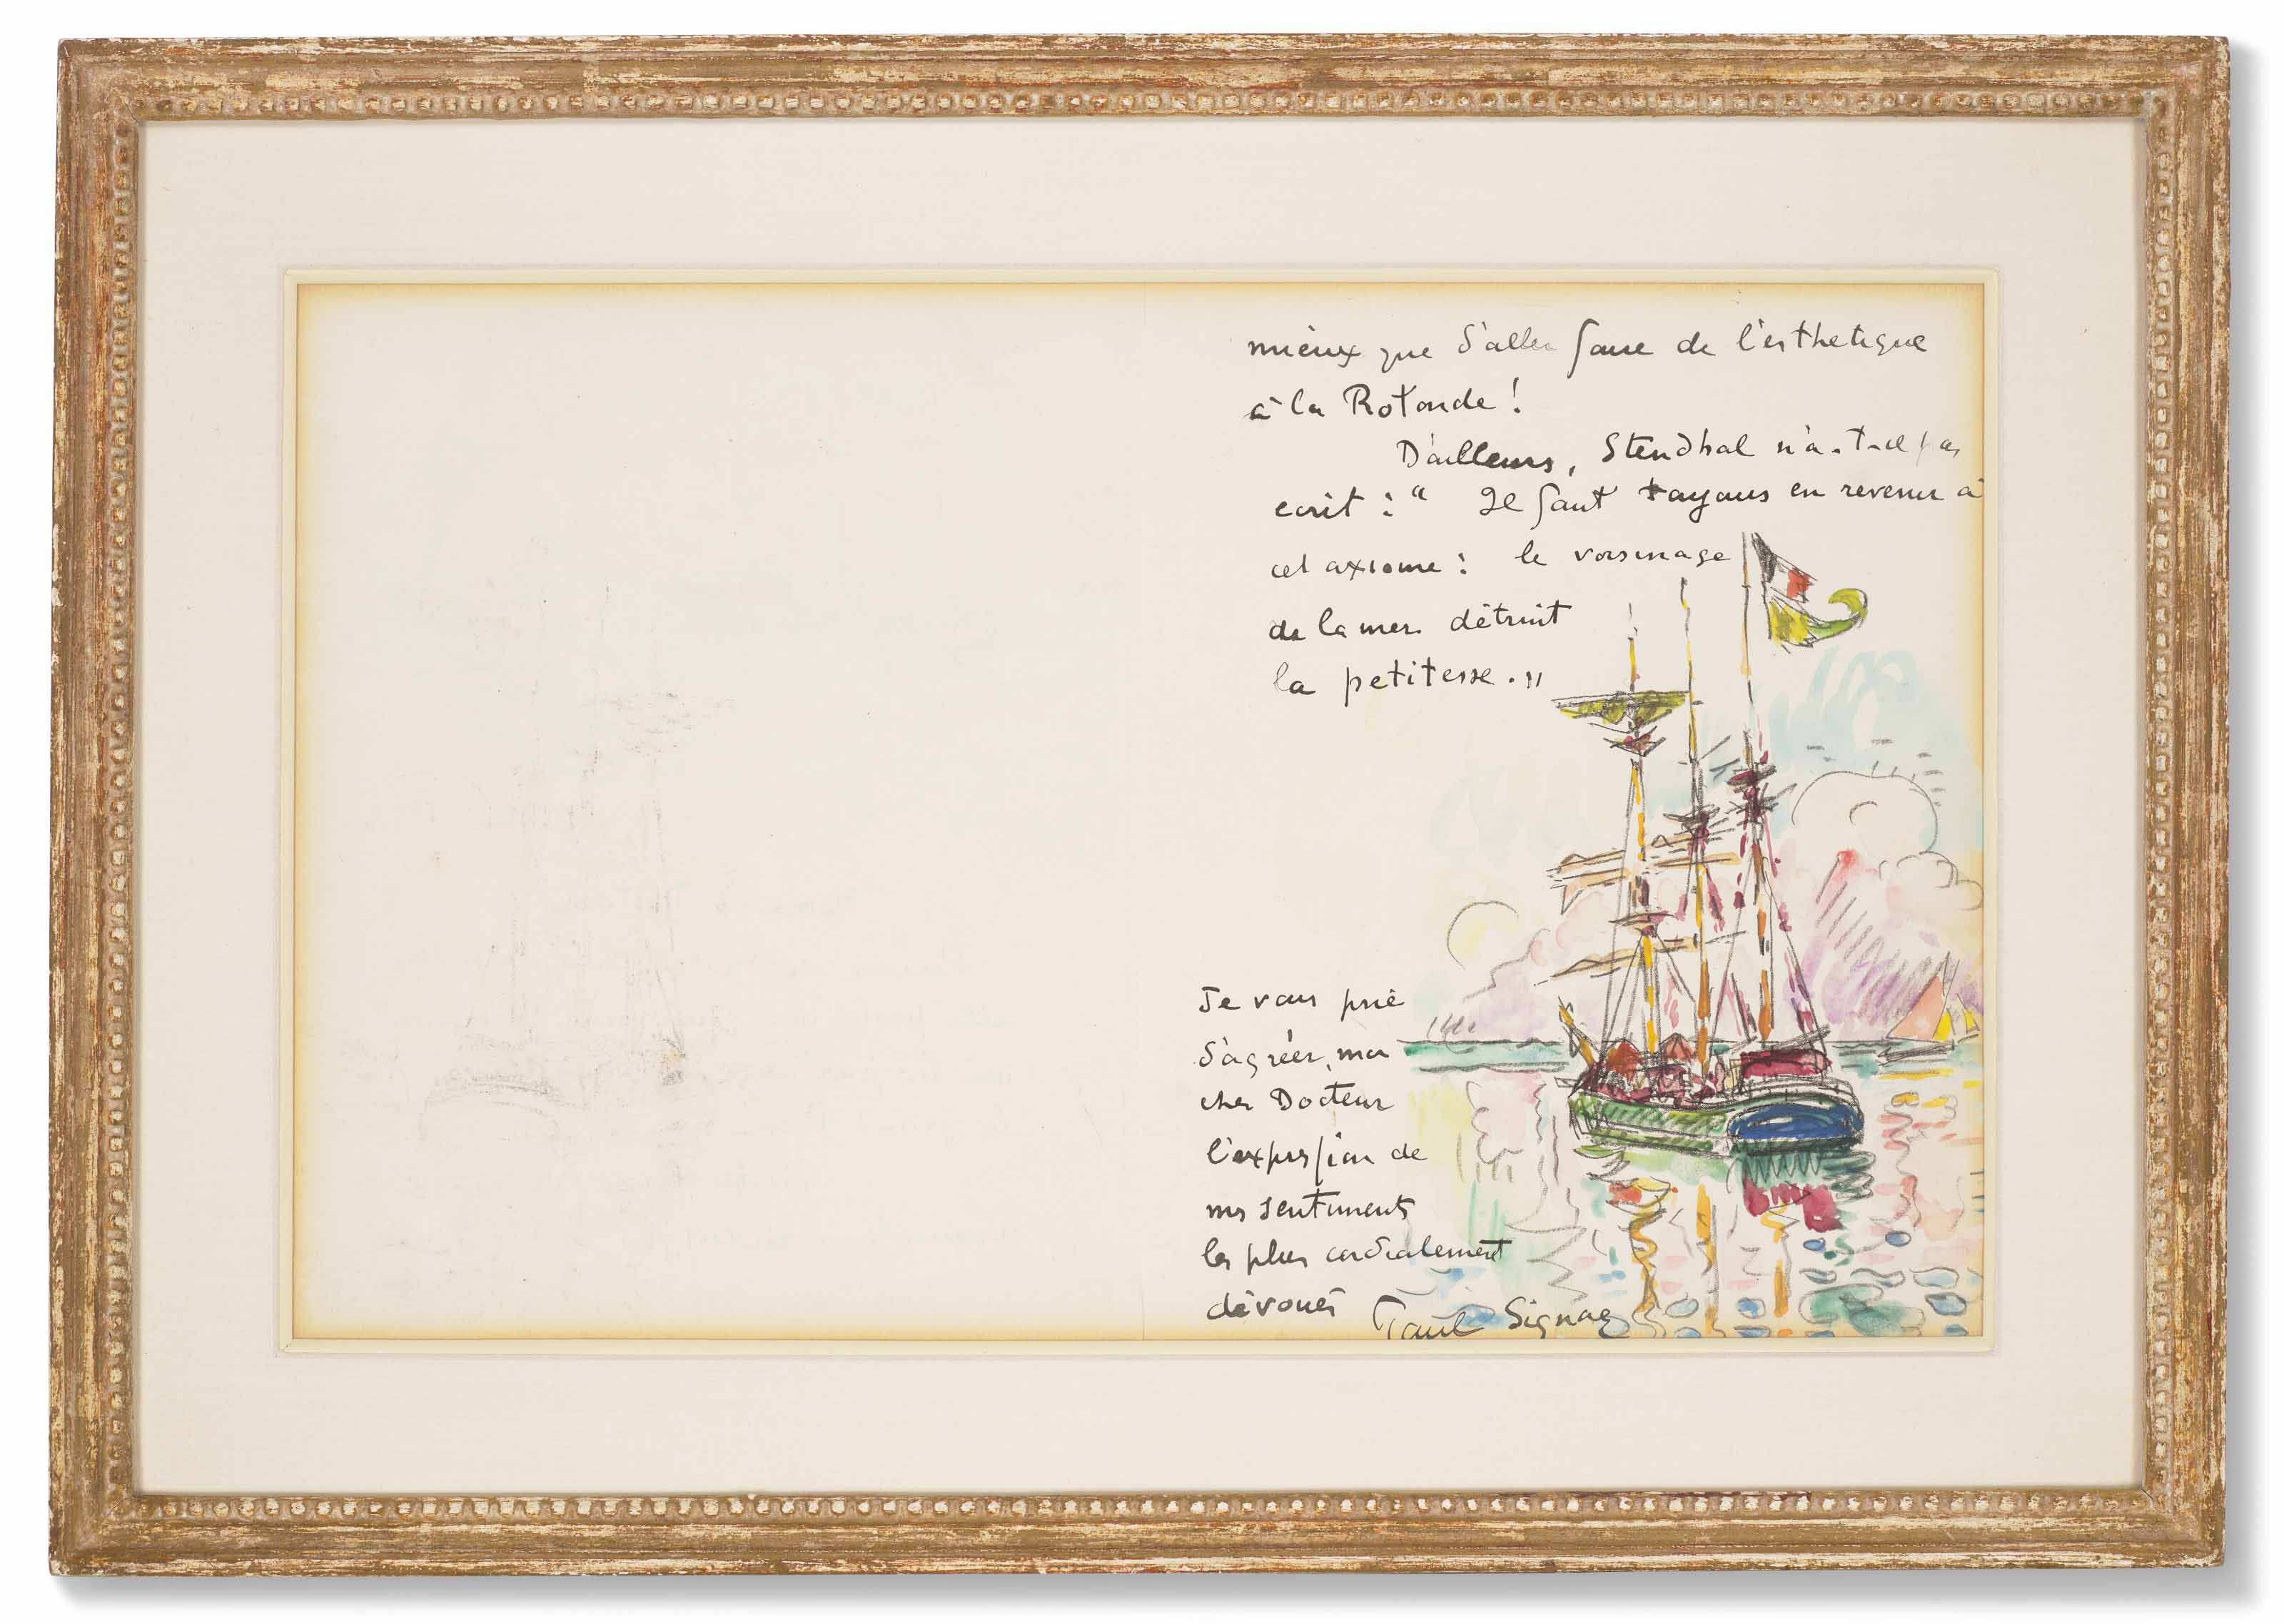 mieux que d'aller faire de l'esthetique
à la Rotonde !
D'ailleurs, Stendhal n'a-t-il pas
ecrit : " Il faut toujours en revenir à
cet axiome : le voisinage
de la mer détruit
la petitesse. "
Je vous prie
d'agréer, mon
cher Docteur
l'expression de
mes sentiments
les plus cordialement
dévoués
Paul Signac